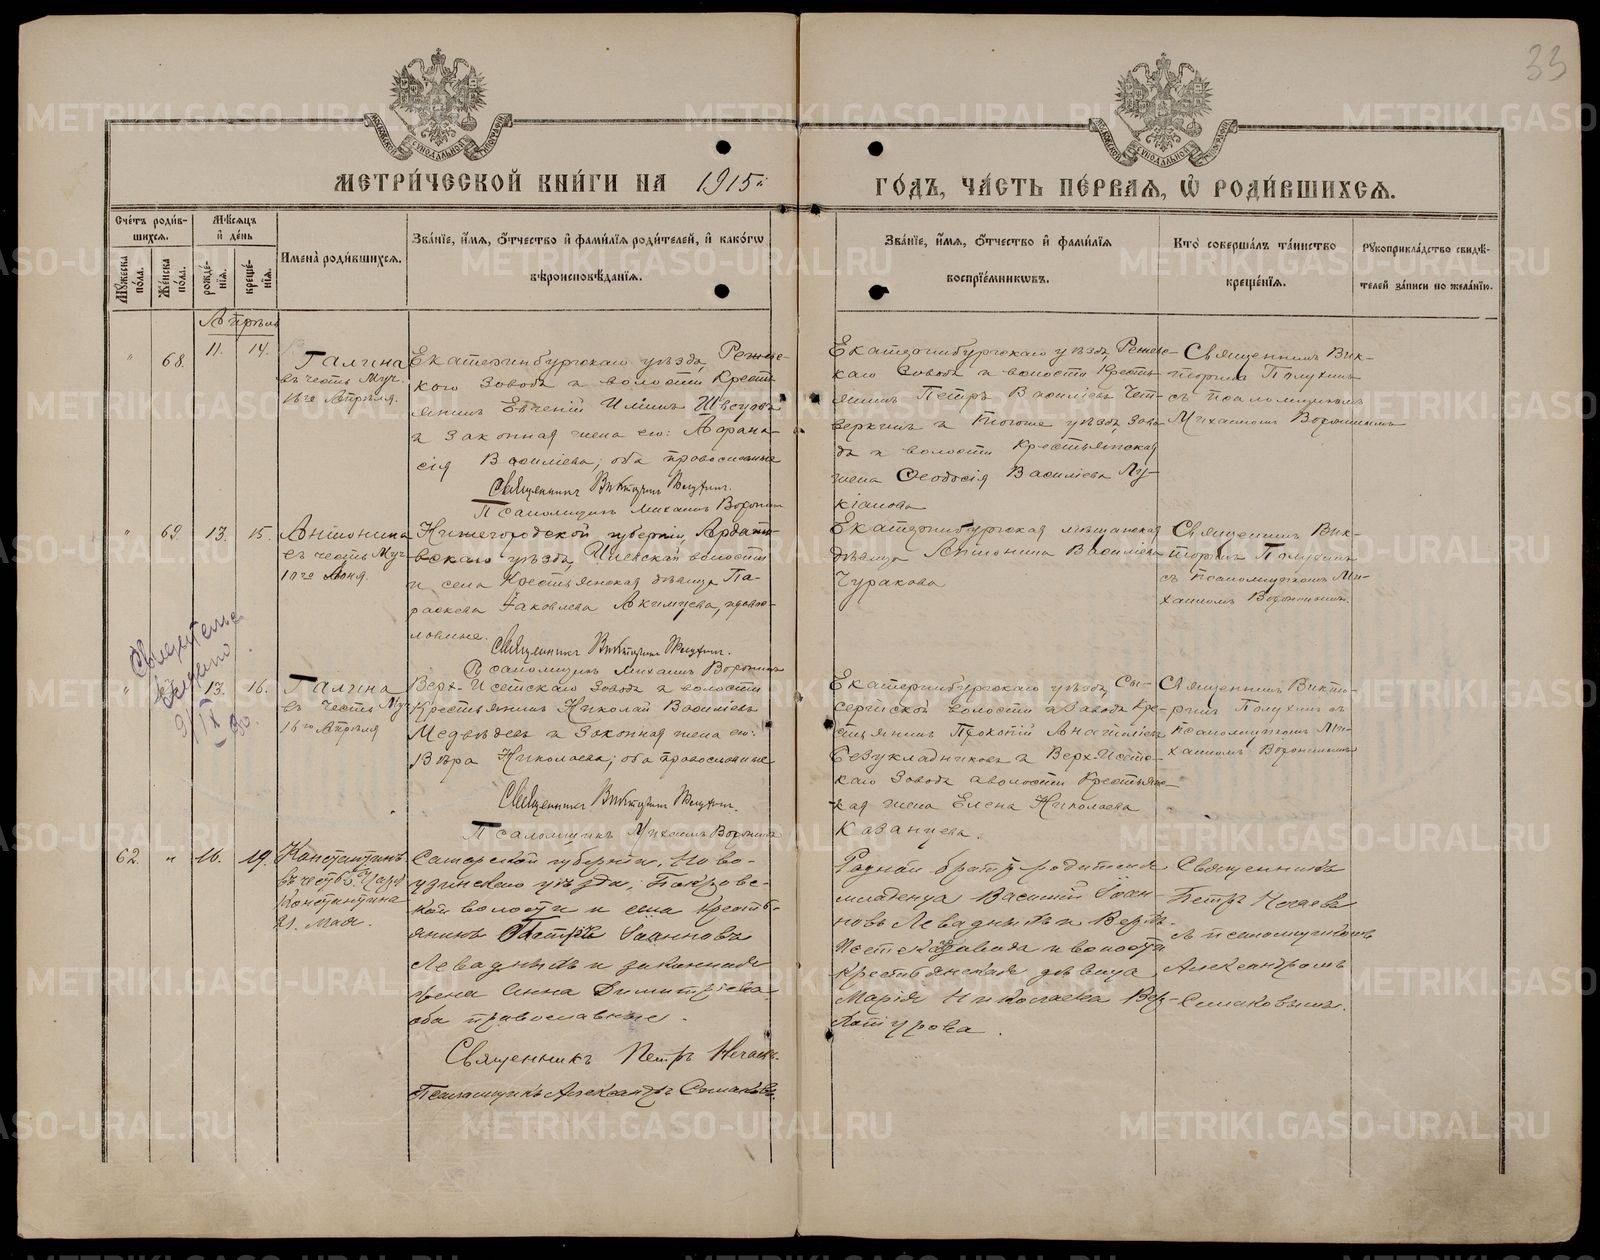 33
МОСКОВСКОЙ СѴНОДАЛЬНОЙ ТИПОГРАФІИ
МОСКОВСКОЙ СѴНОДАЛЬНОЙ ТИПОГРАФІИ
МЕТРИ́ЧЕСКОЙ КНИ́ГИ НА 1915й
ГО́ДЪ, ЧА́СТЬ ПЕ́РВАЯ, Ѡ҆ РОДИ́ВШИХСЯ.
Сче́тъ роди́в-
шихся.
Му́жеска по́ла.
Же́нска по́ла.
Мѣ́сяцъ
и҆ де́нь
рожде́-
нїя.
креще́-
нїя.
Имена̀ роди́вшихся.
Зва́нїе, и҆́мя, о҆́тчество и҆ фами́лїя роди́телей, и҆ како́гѡ
вѣроисповѣ́данїя.
Зва́нїе, и҆́мя, о҆́тчество и҆ фами́лїя
воспрїе́мникѡвъ.
Кто̀ соверша́лъ та́инство
креще́нїя.
Рукоприкла́дство свидѣ́-
телей за́писи по жела́нїю.
Апрѣль
" 68. 11. 14.
Галина
въ честь Муч.
16го Апрѣля.
Екатеринбургскаго уѣзда, Режев-
скаго Завода и волости Кресть-
янинъ Евгеній Ильинъ
и законная жена его:
Васильева; оба православные
Священникъ Викторинъ Полухинъ.
Псаломщикъ Михаилъ Воронинъ
Екатеринбургскаго уѣзда Режев-
скаго Завода и волости Кресть-
янинъ Петръ Васильевъ Чет-
веркинъ и тогоже уѣзда, Заво-
да и волости Крестьянская
жена Ѳеодосія Васильева Лу-
кіанова
Священникъ Вик-
торинъ Полухинъ
съ псаломщикомъ
Михаиломъ Воронинымъ
" 69. 13. 15.
Антонина
въ честь Муч.
10го Іюня.
Нижегородской губерніи, Ардатов-
скаго уѣзда, волости
и села Крестьянская дѣвица Па-
раскева Іаковлева Акимцева, право-
славные.
Священникъ Викторинъ Полухинъ.
Псаломщикъ Михаилъ Воронинъ
Екатеринбургская мѣщанская
дѣвица Антонина Васильева
Чуракова
Священникъ Вик-
торинъ Полухинъ
съ Псаломщикомъ Ми-
хаиломъ Воронинымъ.
Свидетельс
выдано
9/IX-30.
" 13. 16.
Галина
въ честь Муч.
16го Апрѣля
Верх-Исетскаго Завода и волости
Крестьянинъ Николай Васильевъ
Медвѣдевъ и Законная жена его:
Вѣра Николаева; оба православные
Священникъ Викторинъ Полухинъ.
Псаломщикъ Михаилъ Воронинъ
Екатеринбургскаго уѣзда Сы-
сертской волости и Завода Кре-
стьянинъ Прокопій Анатоліевъ
Безукладниковъ и Верх-Исетс-
каго Завода и волости Крестьянс-
кая жена Елена Николаева
Казанцева.
Священникъ Викто-
ринъ Полухинъ съ
Псаломщикомъ Ми-
хаиломъ Воронинымъ
62. " 16. 19.
Константинъ
въ честь Царя
Константина
21. мая.
Самарской губерніи, Ново-
узинскаго уѣзда, Покровс-
кой волости и села кресть-
янинъ Петръ Іоанновъ
Левадный и законная
жена Анна Димитріева
оба православные.
Священникъ Петръ Нечаевъ.
Псаломщикъ Александръ Семаковъ.
Родной братъ родителя
младенца Василій Іоан-
новъ Левадный и Верхъ-
Исетскаго завода и волости
крестьянская дѣвица
Марія Николаева Вер-
хотурова.
Священникъ
Петръ Нечаевъ
съ псаломщикомъ
Александромъ
Семаковымъ.
METRIKI.GASO-URAL.RU